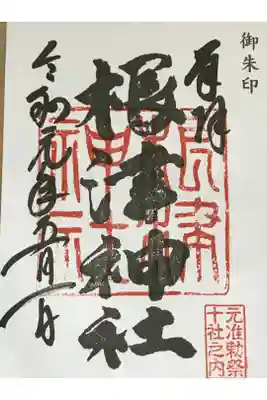 御朱印
奉拝
根津神社
令和元年五月一日
元准勅祭
十社之内